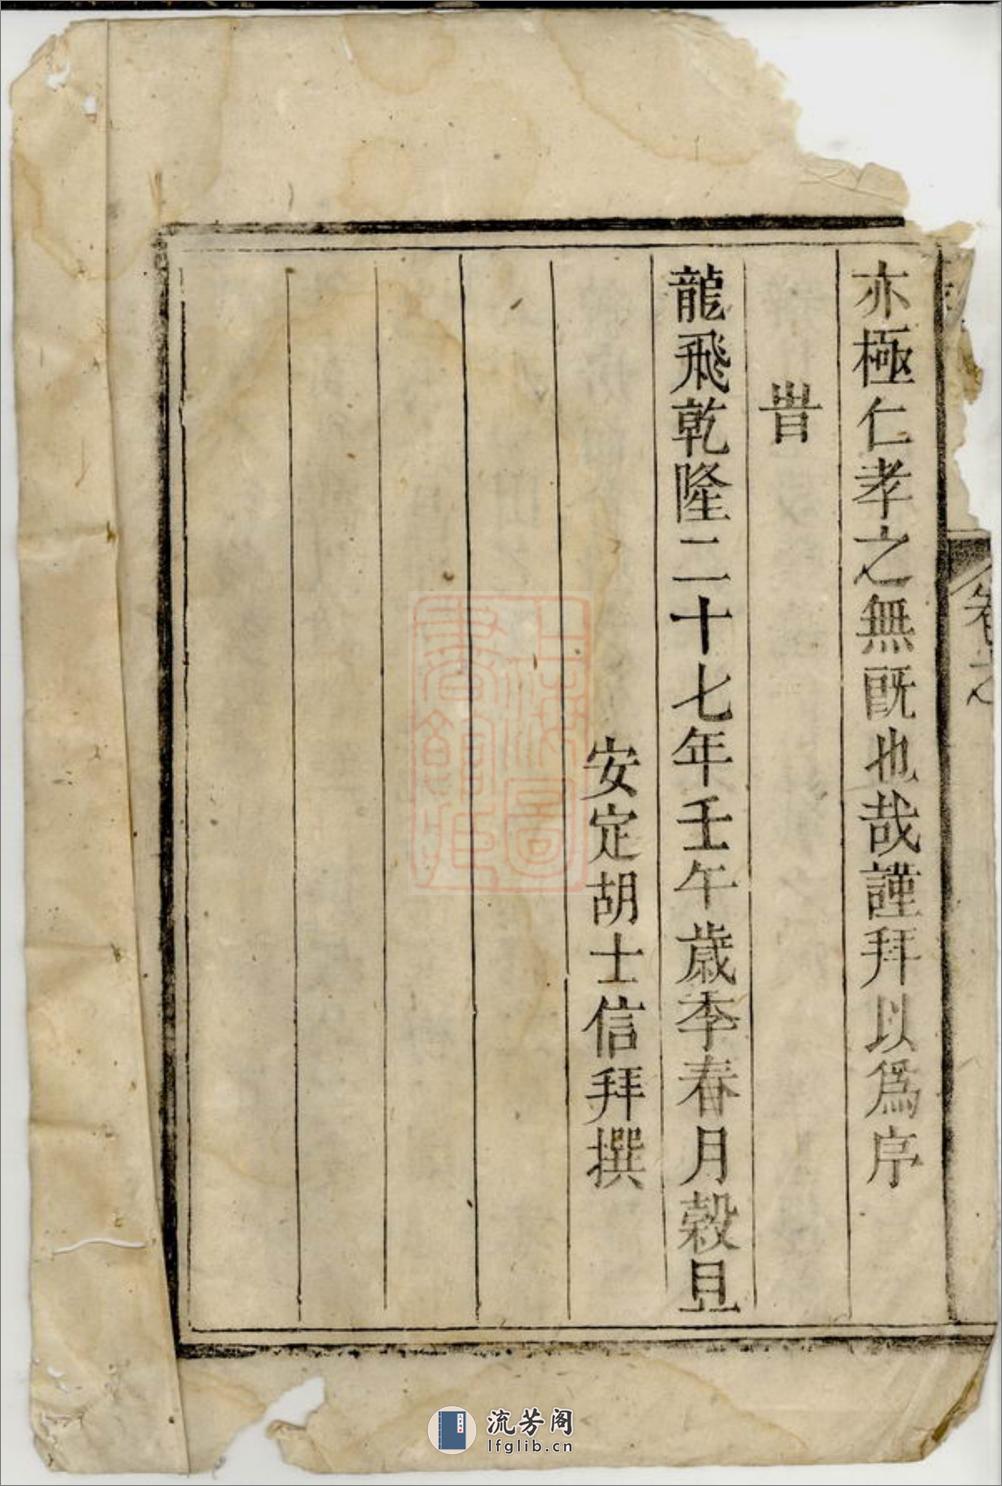 亦極仁孝之無既也哉謹拜以為序
旹
龍飛乾隆二十七年壬午歲季春月穀旦
安定胡士信拜撰
卷之
上海圖
書館藏
流芳阁
lfglib.cn